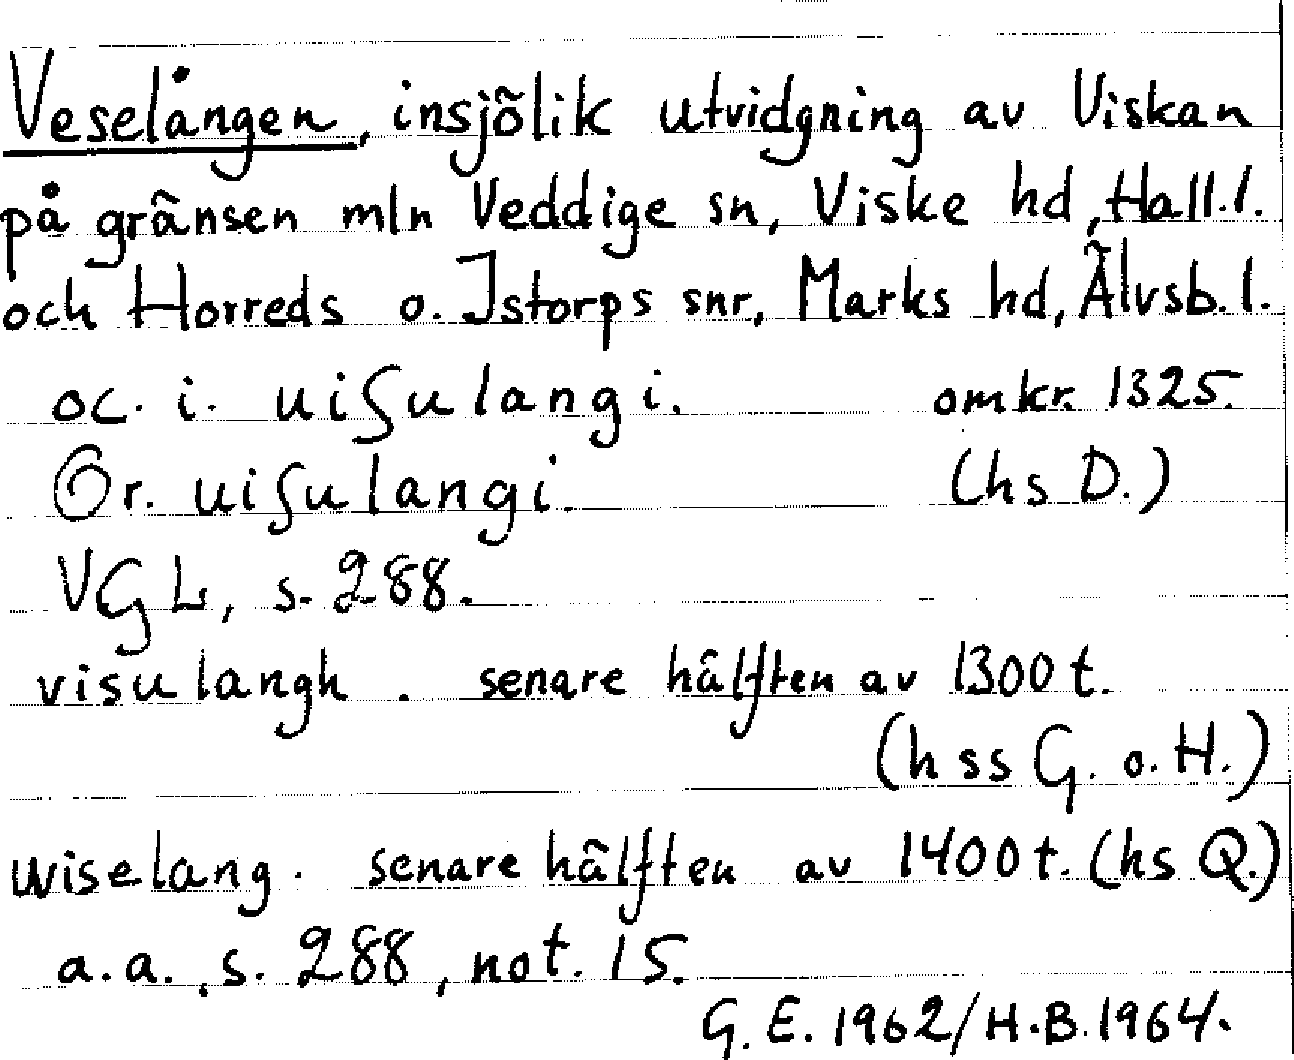 Veselången, insjölik utvidgning av Viskan
på gränsen mln Veddige sn, Viske hd, Hall.l.
och Horreds o. Istorps snr, Marks hd, Älvsb.l.
oc. i. uiſulangi. omkr. 1325.
Or. uiſulangi. (hs D.)
VGL, s. 288.
visulangh. senare hälften av 1300t.
(hss G. o. H.)
wiselang. senare hälften av 1400t. (hs Q.)
a.a., s. 288, not. 15.
G. E. 1962/H.B. 1964.